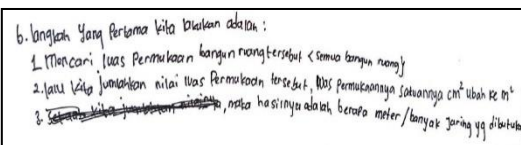 6. langkah yang pertama kita lakukan adalah :
1. Mencari luas permukaan bangun ruang tersebut < semua bangun ruang }
2. lalu kita jumlahkan nilai luas permukaan tersebut, luas permukaannya satuannya cm² ubah ke m²
3. , maka hasilnya adalah berapa meter / banyak jaring yg dibutuh